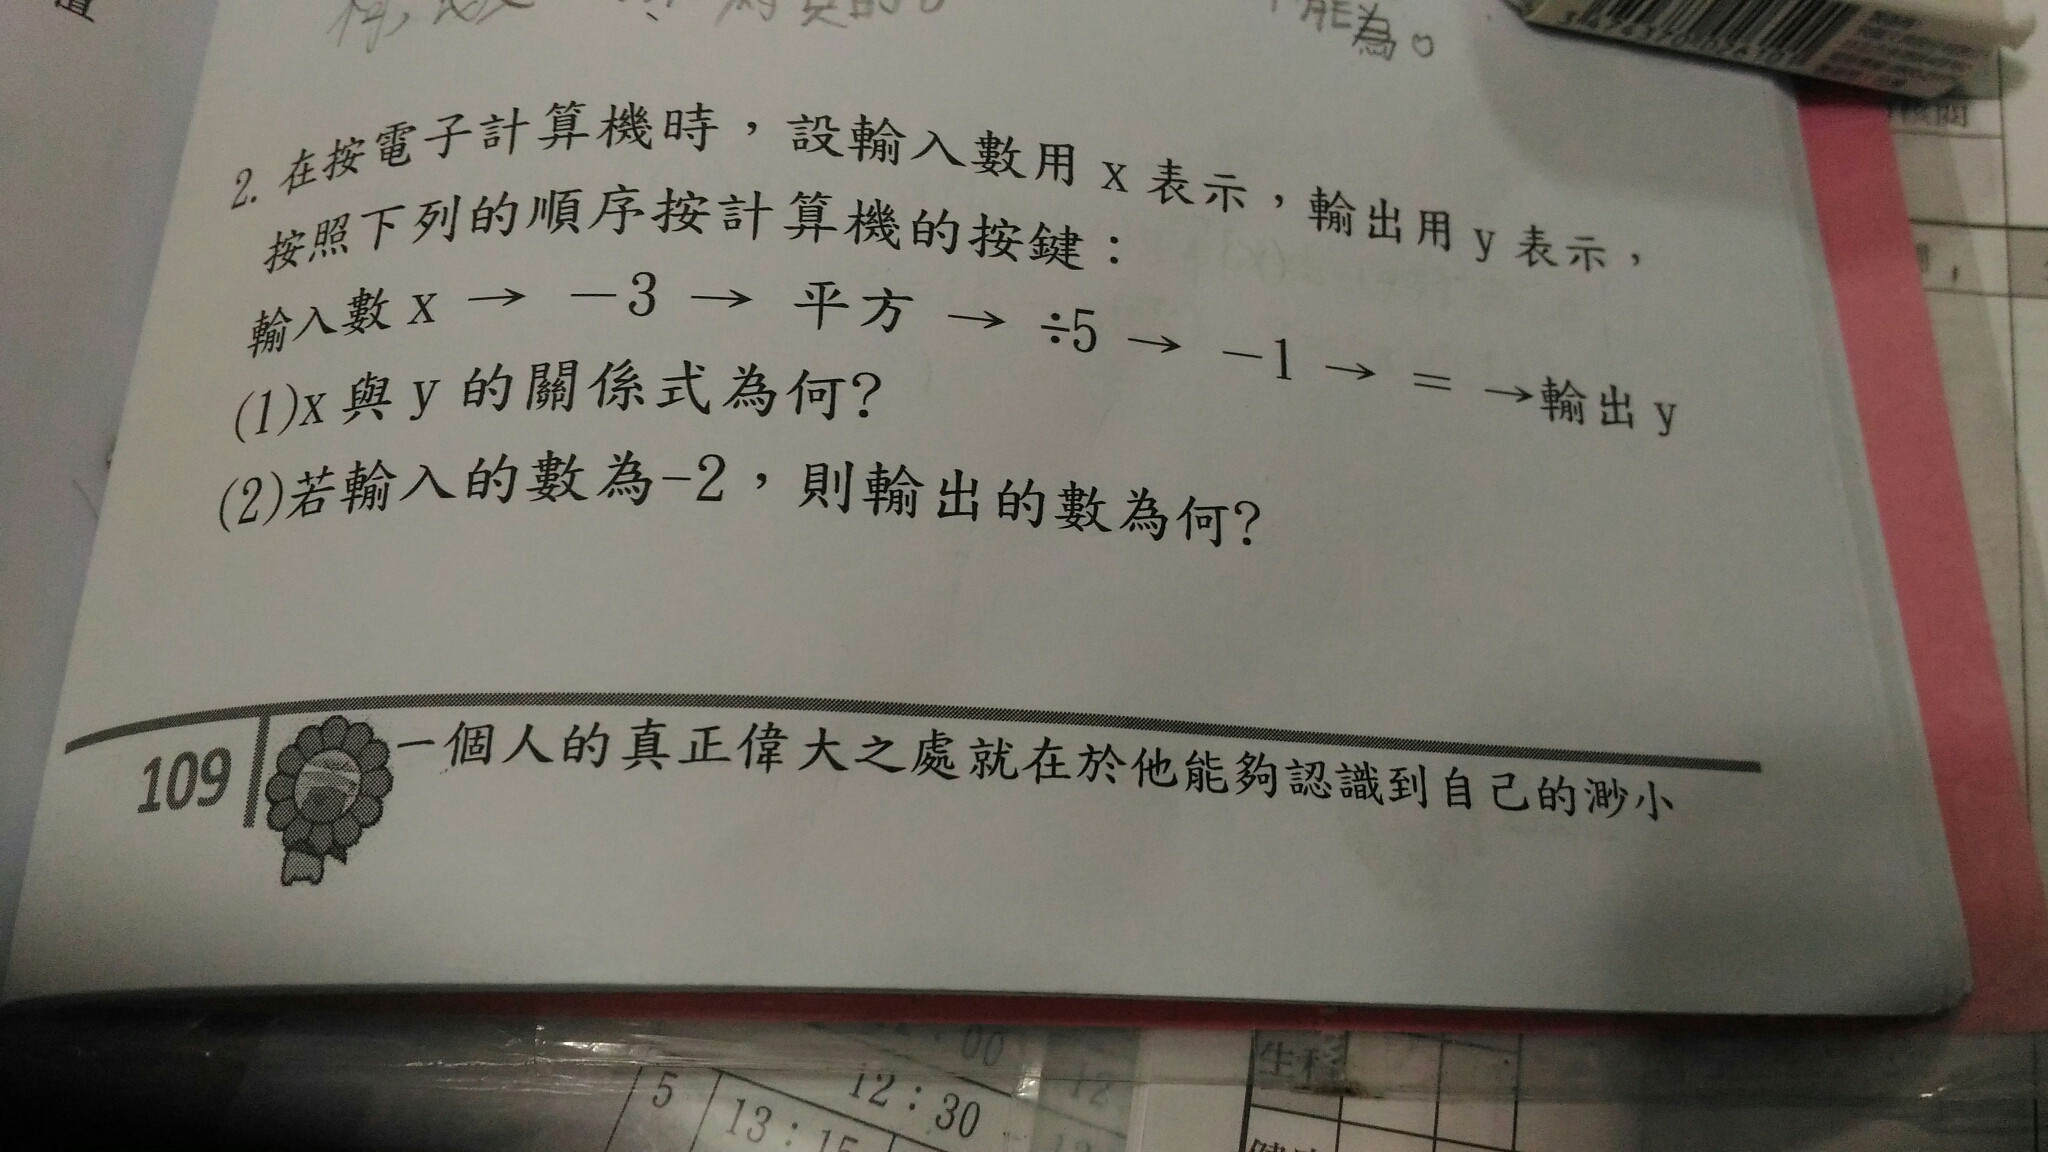 能為。
2. 在按電子計算機時，設輸入數用 x 表示，輸出用 y 表示，
按照下列的順序按計算機的按鍵：
輸入數 x → －3 → 平方 → ÷5 → －1 → ＝ →輸出 y
(1)x 與 y 的關係式為何?
(2)若輸入的數為-2，則輸出的數為何?
109
一個人的真正偉大之處就在於他能夠認識到自己的渺小
12：30
5
13：15
生科